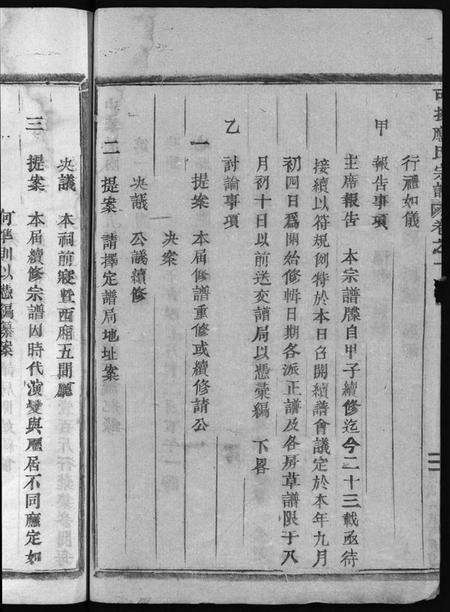 行禮如儀
甲 報告事項
主席報告 本宗譜牒自甲子續修迄今二十三載亟待
接續以符規例特於本日召開續譜會議定於本年九月
初四日爲開始修輯日期各派正譜及各房草譜限于八
月初十日以前送交譜局以憑彙編 下畧
乙 討論事項
一 提案 本屆修譜重修或續修請公
决案
决議 公議續修
二 提案 請擇定譜局地址案
决議 本祠前寢曁西廂五間廳
三 提案 本屆續修宗譜因時代演變與 居不同應定如
何準則以憑編纂案